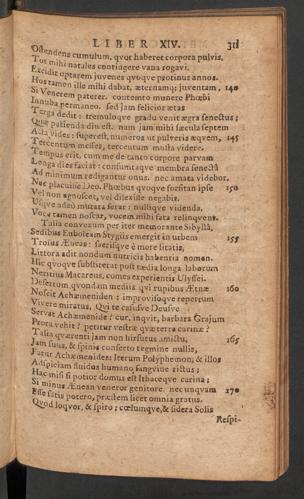 LIBER XIV. 311
Ostendens cumulum, quot haberet corpora pulvis,
Tot mihi natales contingere vana rogavi.
Excidit optarem juvenes quoque protinus annos.
Hos tamen ille mihi dabat, æternamq; juventam, 140
Si Venerem paterer. contemto munere Phœbi
Innuba permaneo. sed jam felicior ætas
Terga dedit: tremuloque gradu venit ægra senectus;
Quæ patienda diu est. nam jam mihi sæcula septem
Acta vides: superest, numeros ut pulveris æquem, 145
Tercentum messes, tercentum musta videre.
Tempus erit, cum me de tanto corpore parvam
Longa dies faciat: consumtaque membra senectâ
Ad minimum redigantur onus. nec amata videbor,
Nec placuisse Deo. Phœbus quoque forsitan ipse 150
Vel non agnoscet, vel dilexisse negabit.
Usque adeò mutata ferar: nullique videnda,
Voce tamen noscar, vocem mihi fata relinquent.
Talia convexum per iter memorante Sibyllâ,
Sedibus Euboïcam Stygiis emergit in urbem 155
Troïus Æneas: sacrisque è more litatis,
Littora adit nondum nutricis habentia nomen.
Hic quoque substiterat post tædia longa laborum
Neritius Macareus, comes experientis Ulyssei.
Desertum quondam mediis qui rupibus Ætnæ 160
Noscit Achæmeniden: improvisoque repertum
Vivere miratus, Qui te casusve Deusve
Servat Achæmenide? cur, inquit, barbara Grajum
Prora vehit? petitur vestræ quæ terra carinæ?
Talia quærenti jam non hirsutus amictu, 165
Jam suus, & spinis conserto tegmine nullis,
Fatur Achæmenides: Iterum Polyphemon, & illos
Adspiciam fluidos humano sanguine rictus;
Hac mihi si potior domus est Ithaceque carina;
Si minus Ænean veneror genitore. nec unquam 170
Esse satis potero, præstem licet omnia gratus.
Quod loquor, & spiro; cœlumque, & sidera Solis
Respi-